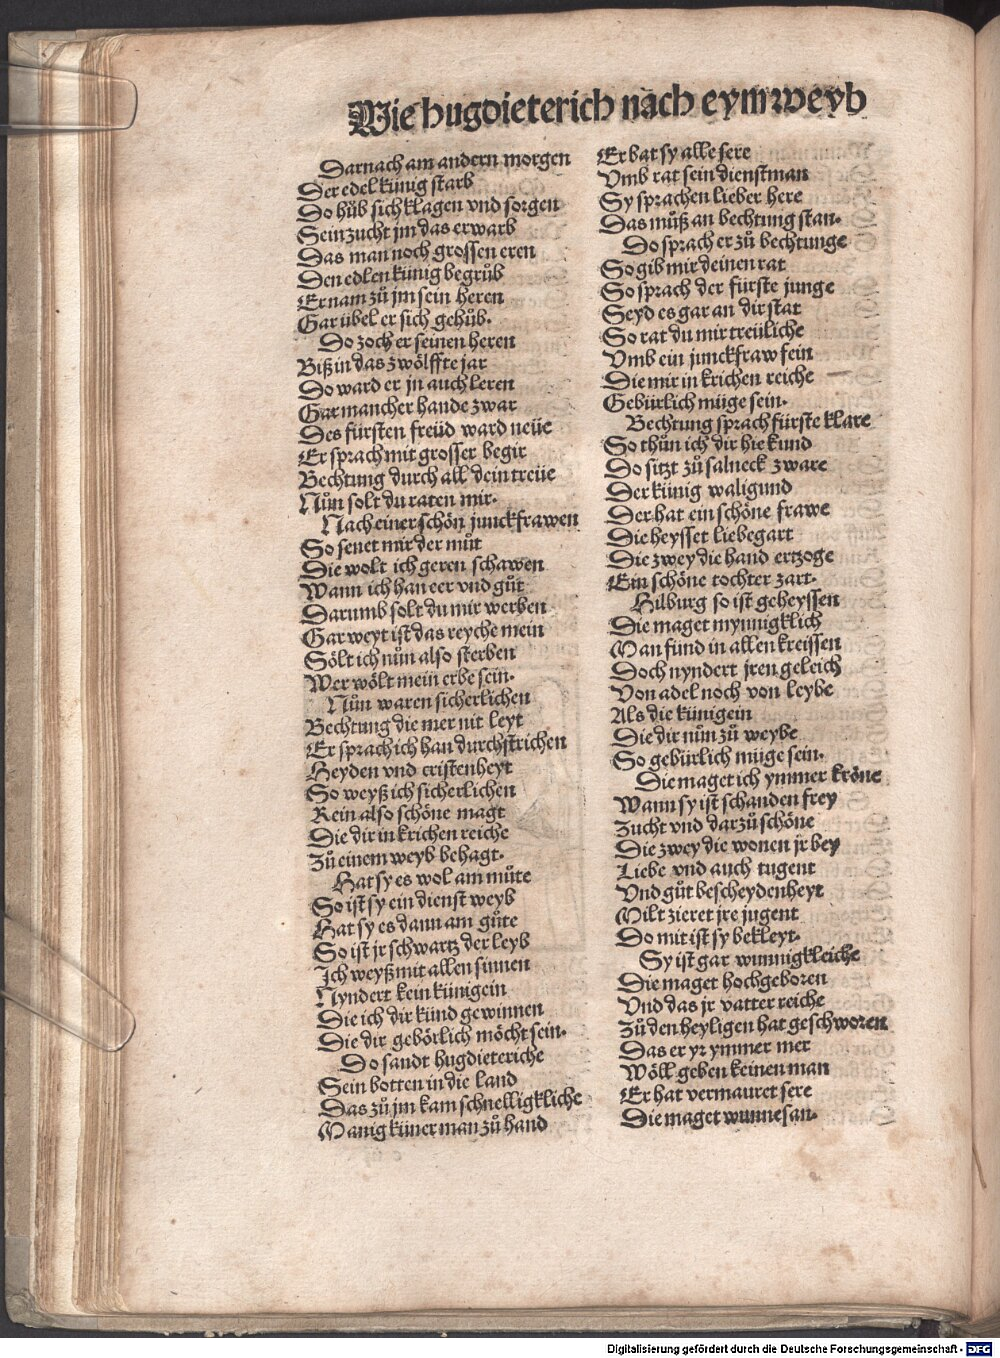 Wie hugdieterich nach eym weyb
Darnach am andern morgen
Der edel künig starb
Do hůb sich klagen vnd sorgen
Sein zucht jm das erwarb
Das man noch grossen eren
Den edlen künig begrůb
Er nam zů jm sein heren
Gar übel er sich gehůb.
Do zoch er seinen heren
Biß in das zwölffte jar
Do ward er jn auch leren
Gar mancher hande zwar
Des fürsten freüd ward neüe
Er sprach mit grosser begir
Bechtung durch all dein treüe
Nůn solt du raten mir.
Nach einer schön junckfrawen
So senet mir der můt
Die wolt ich geren schawen
Wann ich han eer vnd gůt
Darumb solt du mir werben
Gar weyt ist das reyche mein
Sölt ich nůn also sterben
Wer wölt mein erbe sein.
Nůn waren sicherlichen
Bechtung die mer nit leyt
Er sprach ich han durchstrichen
Heyden vnd cristenheyt
So weyß ich sicherlichen
Kein also schöne magt
Die dir in krichen reiche
Zů einem weyb behagt.
Hat sy es wol am můte
So ist sy ein dienst weyb
Hat sy es dann am gůte
So ist jr schwartz der leyb
Ich weyß mit allen sinnen
Nyndert kein künigein
Die ich dir künd gewinnen
Die dir gebörlich möcht sein.
Do sandt hugdieteriche
Sein botten in die land
Das zů jm kam schnelligkliche
Manig küner man zů hand
Er bat sy alle sere
Vmb rat sein dienstman
Sy sprachen lieber here
Das můß an bechtung stan.
Do sprach er zů bechtunge
So gib mir deinen rat
So sprach der fürste junge
Seyd es gar an dir stat
So rat du mir treüliche
Vmb ein junckfraw fein
Die mir in krichen reiche
Gebürlich müge sein.
Bechtung sprach fürste klare
So thůn ich dir hie kund
Do sitzt zů salneck zware
Der künig waligund
Der hat ein schöne frawe
Die heysset liebegart
Die zwey die hand ertzoge
Ein schöne tochter zart.
Hilburg so ist geheyssen
Die maget mynnigklich
Man fünd in allen kreissen
Doch nyndert jren geleich
Von adel noch von leybe
Als die künigein
Die dir nůn zů weybe
So gebürlich müge sein.
Die maget ich ymmer kröne
Wann sy ist schanden frey
Zucht vnd darzů schöne
Die zwey die wonen jr bey
Liebe vnd auch tugent
Vnd gůt bescheydenheyt
Milt zieret jre jugent
Do mit ist sy bekleyt.
Sy ist gar wunnigkleiche
Die maget hochgeboren
Vnd das jr vatter reiche
Zů den heyligen hat geschworen
Das er yr ymmer mer
Wöll geben keinen man
Er hat vermauret sere
Die maget wunnesan.
Digitalisierung gefördert durch die Deutsche Forschungsgemeinschaft - DFG